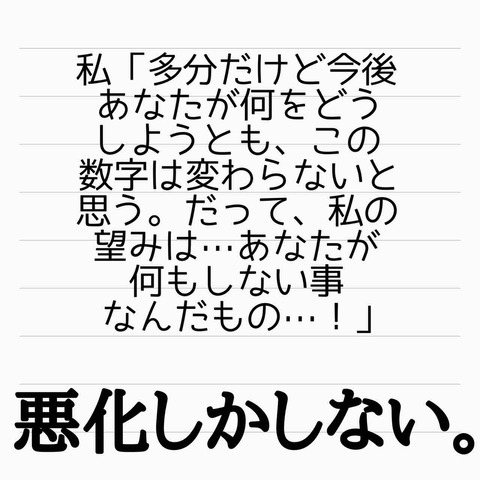 私「多分だけど今後
あなたが何をどう
しようとも、この
数字は変わらないと
思う。だって、私の
望みは…あなたが
何もしない事
なんだもの…！」
悪化しかしない。